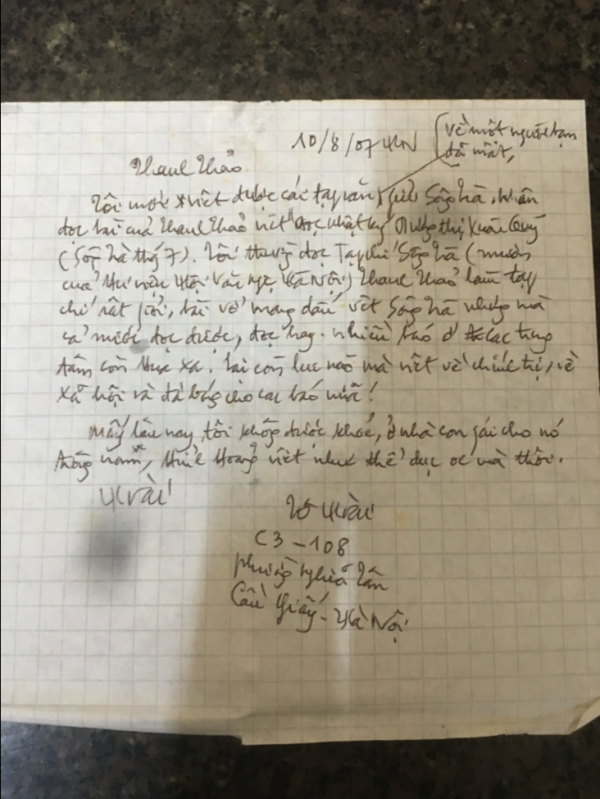 10/8/07 HN (về một người bạn
đã mất,
Thanh Thảo
Tôi mới viết được cái tạp văn gửi Sông Trà, nhân
đọc bài của Thanh Thảo viết "đọc nhật ký Dương thị Xuân Quý
(Sông Trà tháng 7). Tôi thường đọc Tạp chí Sông Trà (mượn
của thư viện Hội Văn học Hà Nội) Thanh Thảo làm tạp
chí rất giỏi, bài vở mang dấu vết Sông Trà nhưng mà
cả nước đọc được, đọc hay. nhiều báo ở các trung
tâm còn thua xa. lại còn lúc nào mà viết về chính trị, về
xã hội và đá bóng cho các báo nữa!
Mấy lâu nay tôi không được khoẻ, ở nhà con gái cho nó
trông nom, thỉnh thoảng viết như thể dục óc mà thôi.
Tô Hoài
C3 - 108
phường Nghĩa Tân
Cầu Giấy - Hà Nội